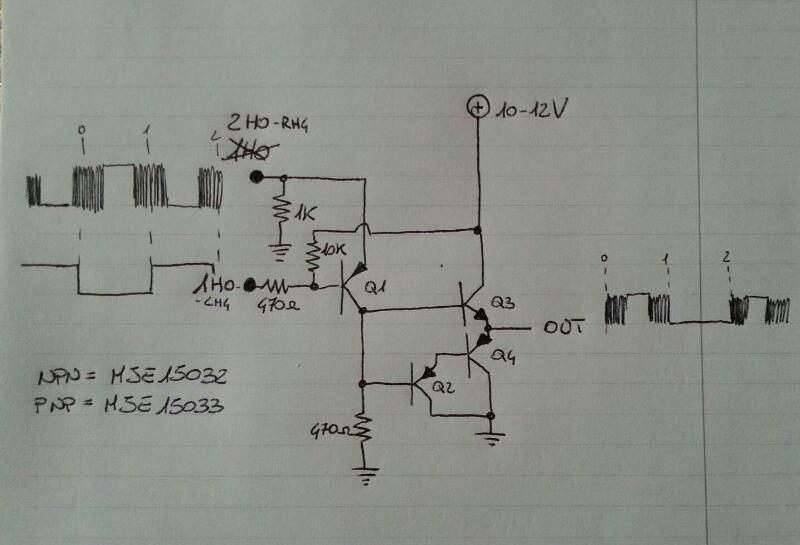 0 1 2
2HO-RHG
1HO
10-12V
1K
10K
1HO-
-LHG
470Ω
Q1
Q3
OUT
0 1 2
Q4
Q2
NPN = MJE15032
PNP = MJE15033
470Ω